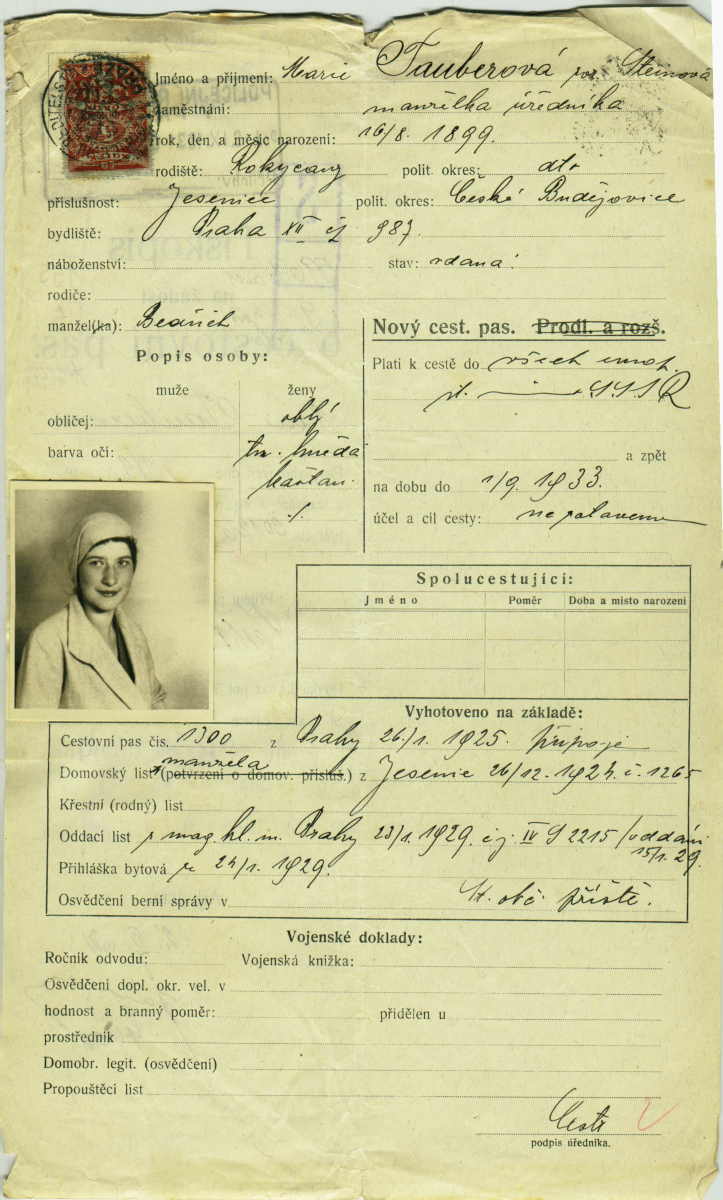 Jméno a přijmení: Marie Tauberová roz. Steinová
zaměstnání: manželka úředníka
rok, den a měsíc narození: 16/8. 1899.
rodiště: Rokycany polit. okres: dto
příslušnost: Jesenice polit. okres: České Budějovice
bydliště: Praha XII čj 987.
náboženství: stav: vdaná.
rodiče:
manžel(ka): Bedřich
Nový cest. pas. Prodl. a rozš.
Popis osoby:
Platí k cestě do všech
muže ženy
S.S.S.R
obličej: oblý
barva očí: tm. hnědá
a zpět
kaštan.
na dobu do 1/9. 1933.
účel a cíl cesty:
Spolucestující:
Jméno Poměr Doba a místo narození
Vyhotoveno na základě:
Cestovní pas čís. 1300 z Prahy 26/1. 1925. připoje
manžela
Domovský list (potvrzení o domov. přísluš.) z Jesenic 26/12. 1924. č. 1265
Křestní (rodný) list
Oddací list mag. hl. m. Prahy 23/1. 1929. č.j. IV 2215 /oddáni
15/1. 29.
Přihláška bytová 24/1. 1929.
Osvědčení berní správy v St. obč. příště.
Vojenské doklady:
Ročník odvodu: Vojenská knížka:
Osvědčení dopl. okr. vel. v
hodnost a branný poměr: přidělen u
prostředník
Domobr. legit. (osvědčení)
Propouštěcí list
podpis úředníka.